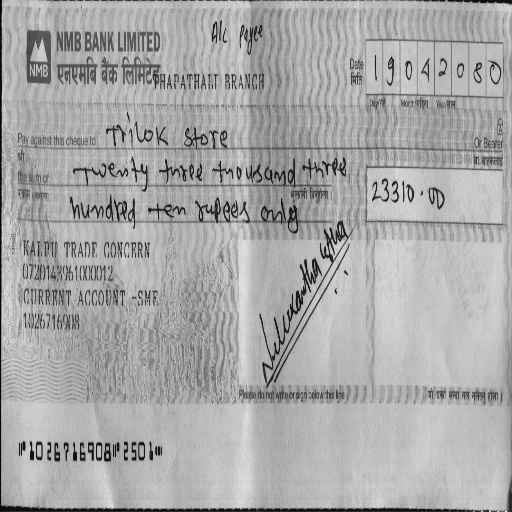 A/c Payee
NMB BANK LIMITED
एनएमबि बैंक लिमिटेड
THAPATHALI BRANCH
NMB
Date
मिति
19042080
Pay against this cheque to Trilok Store
Or Bearer
the sum of Twenty three thousand three
hundred ten rupees only
23310.00
KALPU TRADE CONCERN
0720143961000012
CURRENT ACCOUNT -SME
1026716908
Please do not write or sign below this line
⑈1026716908⑈2501⑈